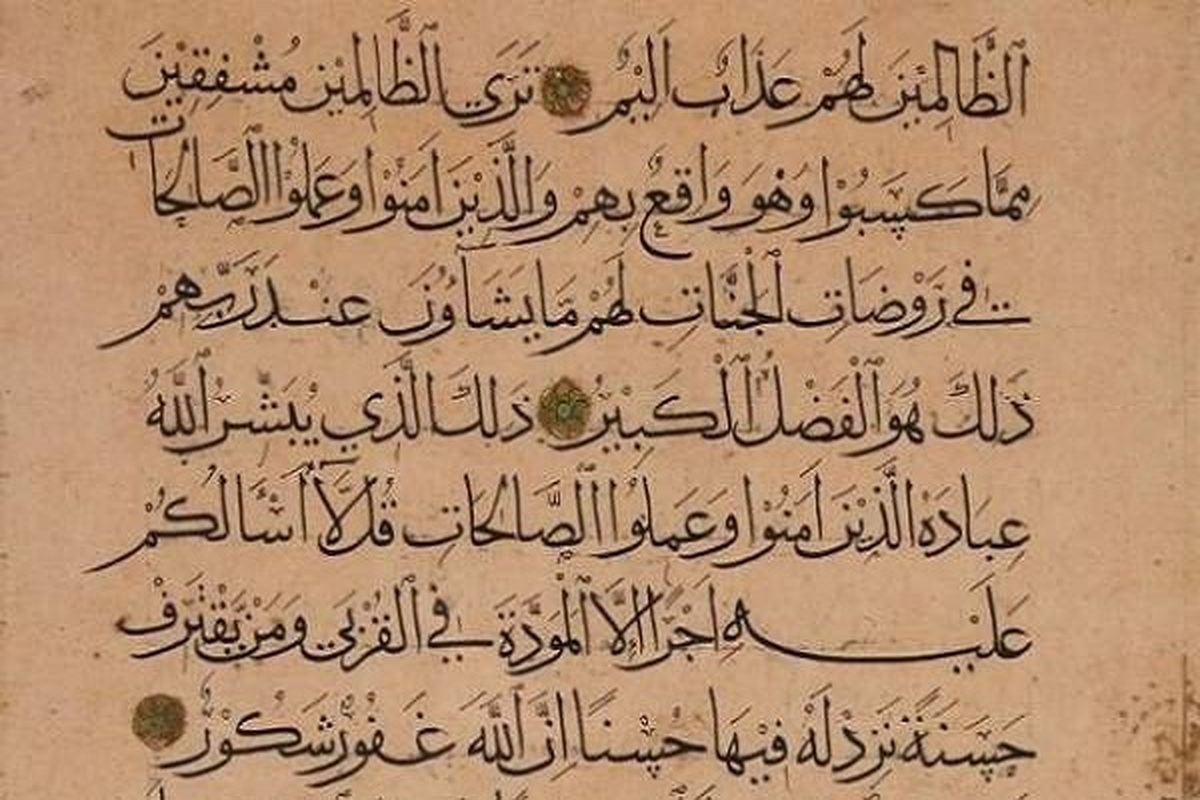 ٱلظَّالِمِيْنَ لَهُمْ عَذَابٌ اَلِيْمٌ تَرَي ٱلظَّالِمِيْنَ مُشْفِقِيْنَ
مِمَّا كَسَبُوْا وَهُوَ وَاقِعٌ بِهِمْ وَالَّذِيْنَ اٰمَنُوْا وَعَمِلُوْا ٱلصَّالِحَاتِ
فِي رَوْضَاتِ ٱلْجَنَّاتِ لَهُمْ مَّا يَشَآوُنَ عِنْدَ رَبِّهِمْ
ذَلِكَ هُوَ ٱلْفَضْلُ ٱلْكَبِيْرُ ذَلِكَ الَّذِي يُبَشِّرُ ٱللَّهُ
عِبَادَهُ الَّذِيْنَ اٰمَنُوْا وَعَمِلُوْا ٱلصَّالِحَاتِ قُلْ لَّآ اَسْأَلُكُمْ
عَلَيْهِ اَجْرًا اِلَّا ٱلْمَوَدَّةَ فِي ٱلْقُرْبَي وَمَنْ يَقْتَرِفْ
حَسَنَةً نَزِدْ لَهُ فِيْهَا حُسْنًا اِنَّ ٱللَّهَ غَفُوْرٌ شَكُوْرٌ